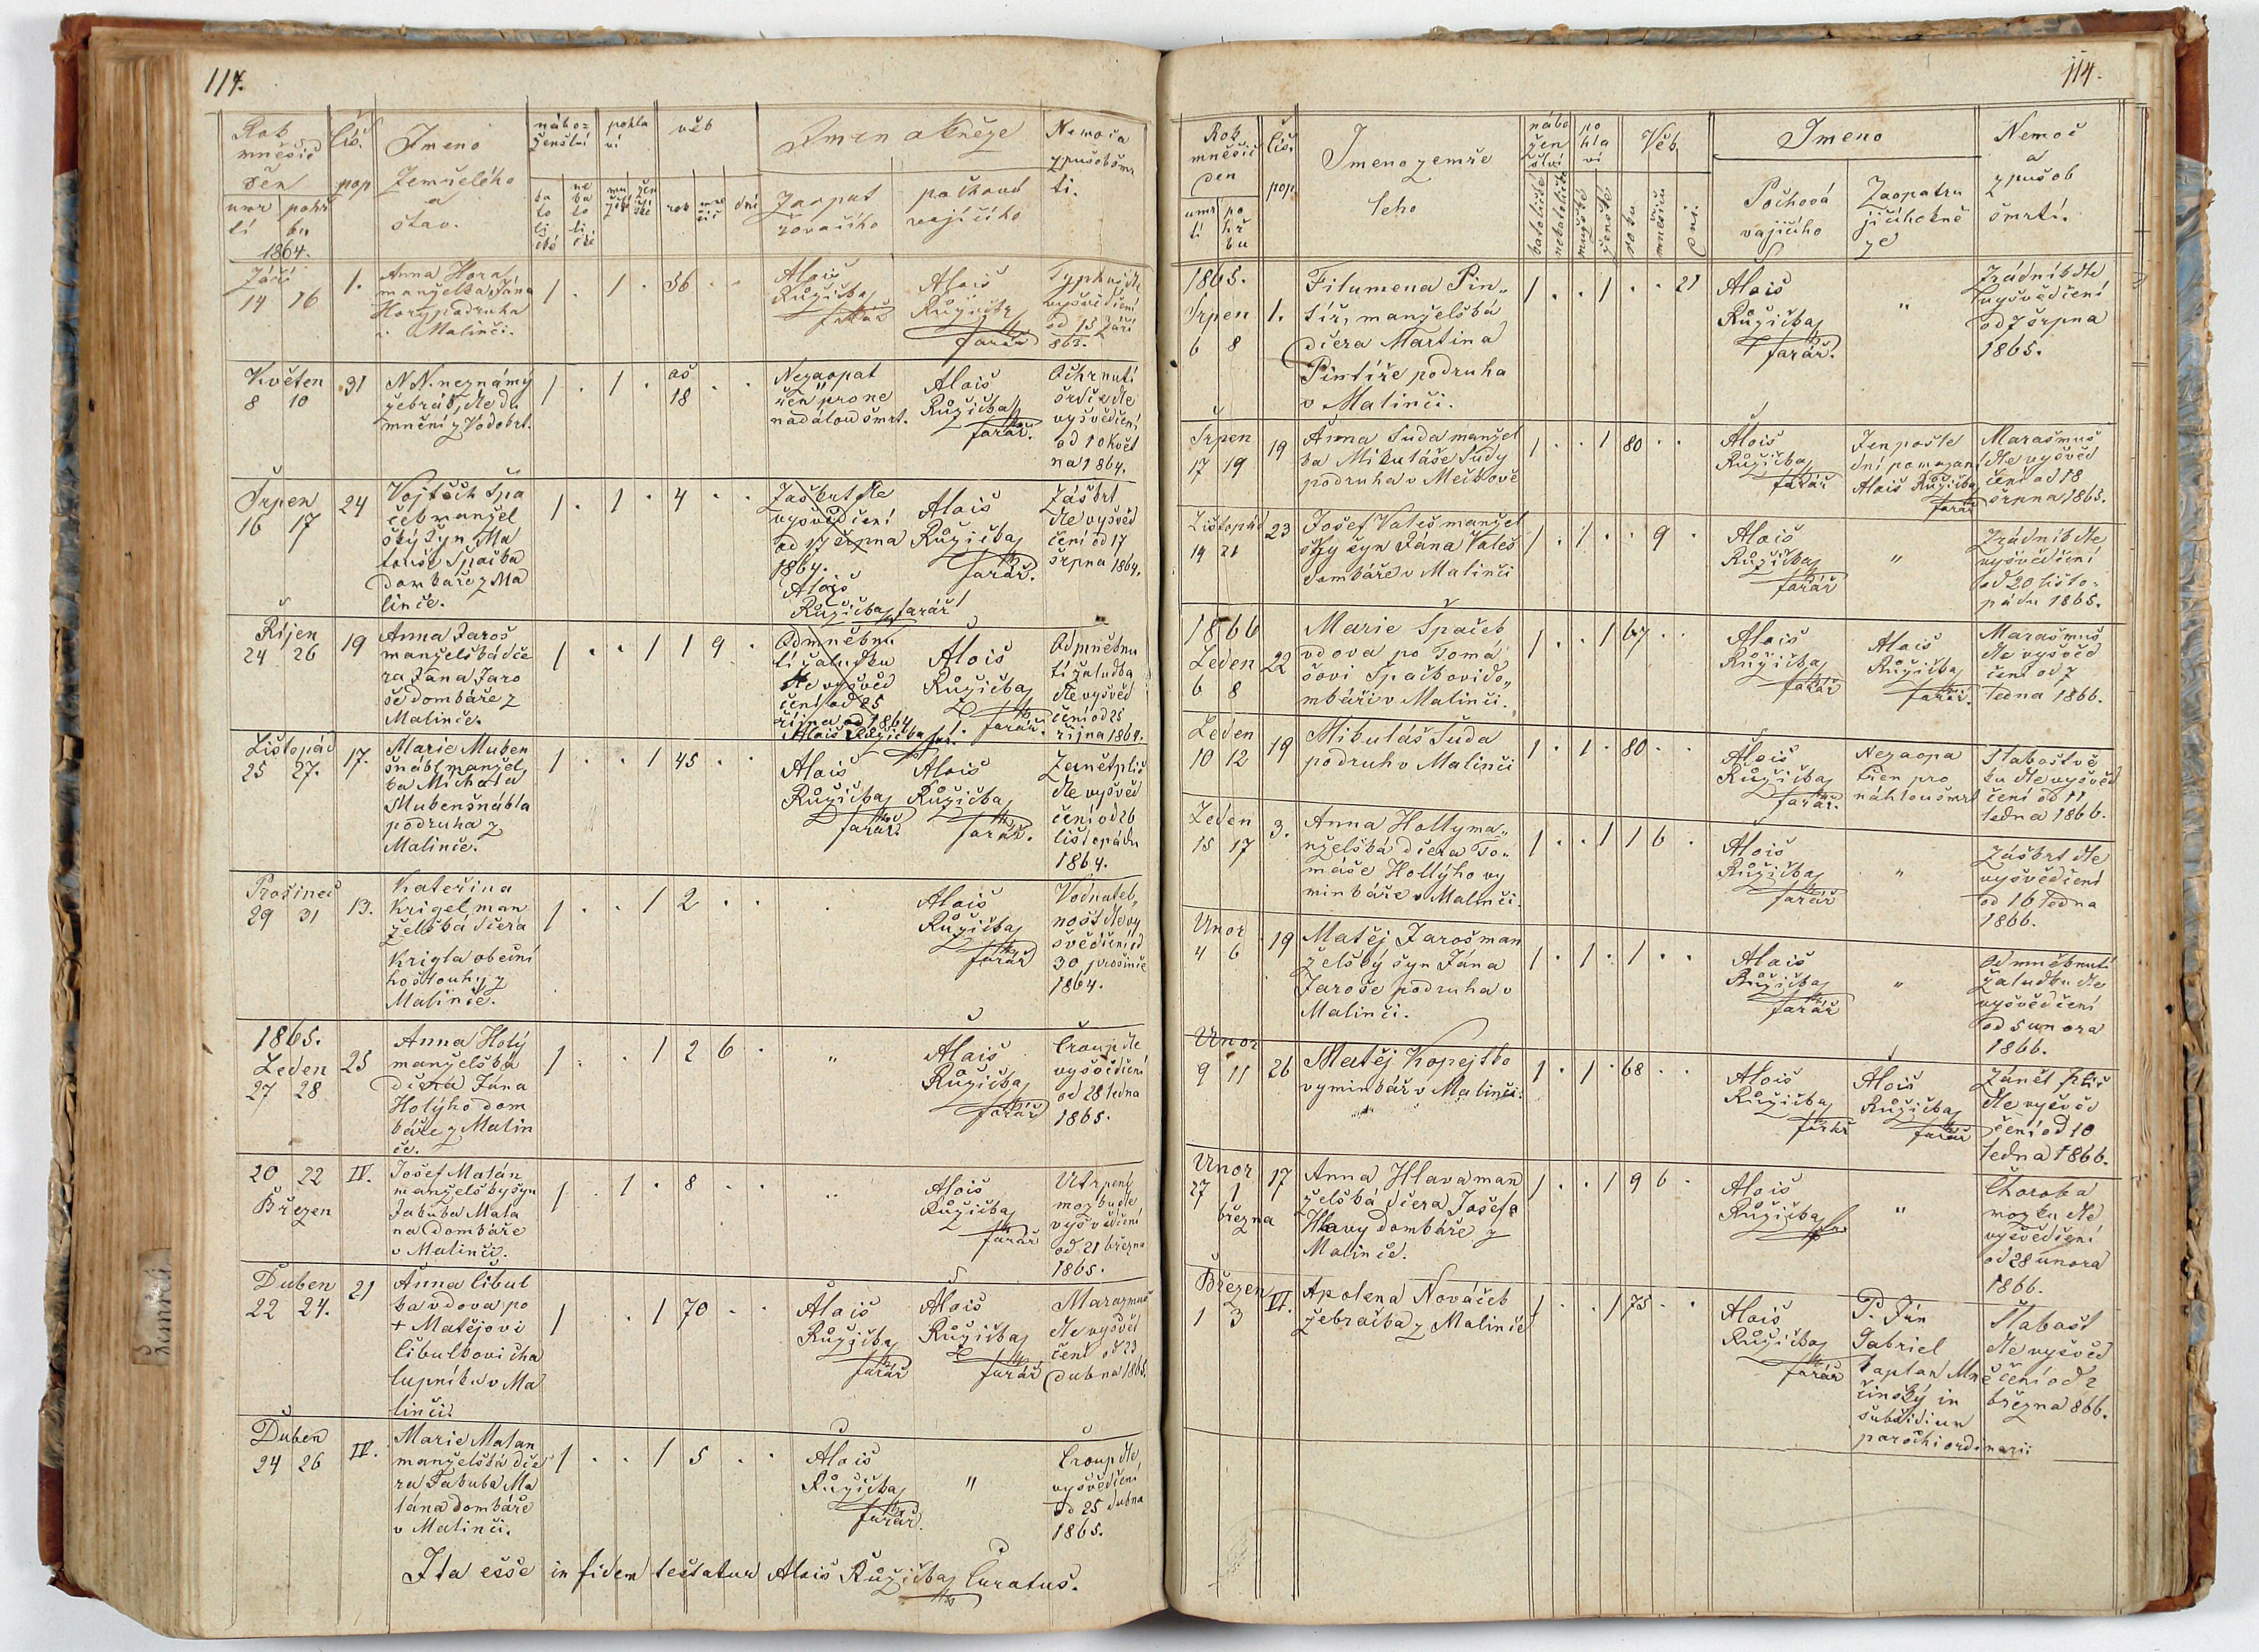 114.
Rok
mněsíc
den
umr
tí
pohř
bu
1864.
Čís.
pop
Jmeno
Zemřelého
a
stav.
nábo=
ženství
ka
to
li
cké
ne
ka
to
li
cké
pohla
ví
mu
žské
žen
ské
věk
rok
mně
síc
dní
Jmeno kněze
Zaopat
řovacího
pochová
vajícího
Nemoc a
způsob smr
ti.
Září
14 16
1.
Anna Hora
manželka Jána
Hory podruha
v Malinči.
1 . 1 . 56 . .
Alois
Růžička
farář
Alois
Růžička
farář
Typhus dle
vysvědčení
od 15 Září
863.
Květen
8 10
31
N N. neznámý
žebrák, dle do
mnění z Vodokrt.
1 . 1 . as
18 . .
Nezaopat
řen pro ne
nadálou smrt.
Alois
Růžička
farář.
Ochrnutí
srdce dle
vysvědčení
od 10 Květ
na 1864.
Srpen
16 17
24
Vojtěch Špa
ček manžel
ský syn Ma
touše Špačka
domkáře z Ma
linče.
1 . 1 . 4 . .
Záškrt dle
vysvědčení
od 17 srpna
1864.
Alois
Růžička farář
Alois
Růžička
farář.
Záškrt
dle vysvěd
čení od 17
srpna 1864.
Říjen
24 26
19
Anna Jaroš
manželská dce
ra Jána Jaro
še domkáře z
Malinče.
1 . . 1 1 9 .
Odmněknu
tí žaludku
dle vysvěd
čení od 25
října od 1864.
Alois Růžička far.
Alois
Růžička
farář.
Odmněknu
tí žaludka
dle vysvěd
čení od 25
října 1864.
Listopád
25 27.
17.
Marie Muken
šnábl manžel
ka Michala
Mukenšnábla
podruha z
Malinče.
1 . . 1 45 . .
Alois
Růžička
farář.
Alois
Růžička
farář.
Zanět plic
dle vysvěd
čení od 26
listopádu
1864.
Prosinec
29 31
13.
Kateřina
Krigel man
želská dcera
Krigla obecní
ho slouhy z
Malinče.
1 . . 1 2 . .
Alois
Růžička
farář
Vodnatel„
nost dle vy
svědčení od
30 prosince
1864.
1865.
Leden
27 28
25
Anna Holý
manželská
dcera Jána
Holýho dom
káře z Malin
če.
1 . . 1 2 6 .
"
Alois
Růžička
farář
Croup dle
vysvědčení
od 28 ledna
1865.
20 22
Březen
IV.
Josef Malán
manželský syn
Jakuba Mala
na domkáře
v Malinči.
1 . 1 . 8 . .
"
Alois
Růžička
farář
mozku dle
vysvědčení
od 21 března
1865.
Duben
22 24.
21
Anna Cibul
ka vdova po
+ Matějovi
Cibulkovi cha
lupníku v Ma
linči.
1 . 1 70 . .
Alois
Růžička
farář
Alois
Růžička
farář
Marazmus
dle vysvěd
čení od 23
dubna 1865.
Duben
24 26
IV.
Marie Malan
manželská dce
ra Jakuba Ma
lána domkáře
v Malinči.
1 . . 1 5 . .
Alois
Růžička
farář.
"
Croup dle
vysvědčení
od 25 dubna
1865.
Ita esse in fidem testatur Alois Růžička Curatus.
Zemřelí
114.
Rok
mněsíc
den
umr
tí
po
hř
bu
Čís.
pop.
Jmeno zemře
leho
nábo
žen
ství
katolické
nekatolické
po
hla
ví
mužské
ženské
Věk
roku
mněsíců
dní.
Jmeno
Pochová
vajícího
Zaopatru
jícího kně
ze
Nemoc
a
způsob
smrti.
1865.
Srpen
6 8
1.
Filumena Pin„
tíř, manželská
dcera Martina
Pintíře podruha
v Malinči.
1 . . 1 . . 21
Alois
Růžička
farář.
"
Zrádník dle
vysvědčení
od 7 srpna
1865.
Srpen
17 19
19
Anna Suda manžel
ka Mikuláše Sudy
podruha v Mečkově
1 . . 1 80 . .
Alois
Růžička
farář
Jen posle
dní pomazaní
Alois Růžička
farář
Marasmus
dle vysvěd
čení od 18
srpna 1865.
Listopád
19 21
23
Josef Valeš manžel
ský syn Jána Valeš
domkáře v Malinči
1 . 1 . . 9 .
Alois
Růžička
farář
"
Zrádník dle
vysvědčení
od 20 listo=
pádu 1865.
1866
Leden
6 8
22
Marie Špaček
vdova po Toma
šovi Špačkovi do„
mkáři v Malinči.
1 . . 1 67 . .
Alois
Růžička
farář
Alois
Růžička
farář.
Marasmus
dle vysvěd
čení od 7
ledna 1866.
Leden
10 12
19
Mikuláš Suda
podruh v Malinči
1 . 1 . 80 . .
Alois
Růžička
farář.
Nezaopa
třen pro
náhlou smrt
Slabost vě
ku dle vysvěd
čení od 11
ledna 1866.
Leden
15 17
3.
Anna Hollý ma„
nželská dcera To„
máše Hollýho vy
minkáře v Malinči.
1 . . 1 1 6 .
Alois
Růžička
farář
"
Záškrt dle
vysvědčení
od 16 ledna
1866.
Unor
4 6
19
Matěj Jaroš man
želský syn Jána
Jaroše podruha v
Malinči.
1 . 1 . 1 . .
Alois
Růžička
farář
"
Odmněknutí
žaludku dle
vysvědčení
od 5 unora
1866.
Unor
9 11
26
Matěj Kopejtko
vyminkář v Malinči.
1 . 1 . 68 . .
Alois
Růžička
farář
Alois
Růžička
farář
Zánět plic
dle vysvěd
čení od 10
ledna 1866.
Unor
27 1
března
17
Anna Hlava man
želská dcera Josefa
Hlavy domkáře z
Malinče.
1 . . 1 9 6 .
Alois
Růžička
"
Choroba
mozku dle
vysvědčení
od 28 unora
1866.
Březen
1 3
VI.
Apolena Nováček
žebračka z Malinče
1 . . 1 75 . .
Alois
Růžička
farář
P. Ján
Gabriel
kaplan Mně
činský in
subsidium
parochi ordinarii
Slabost
dle vysvěd
čení od 2
března 866.